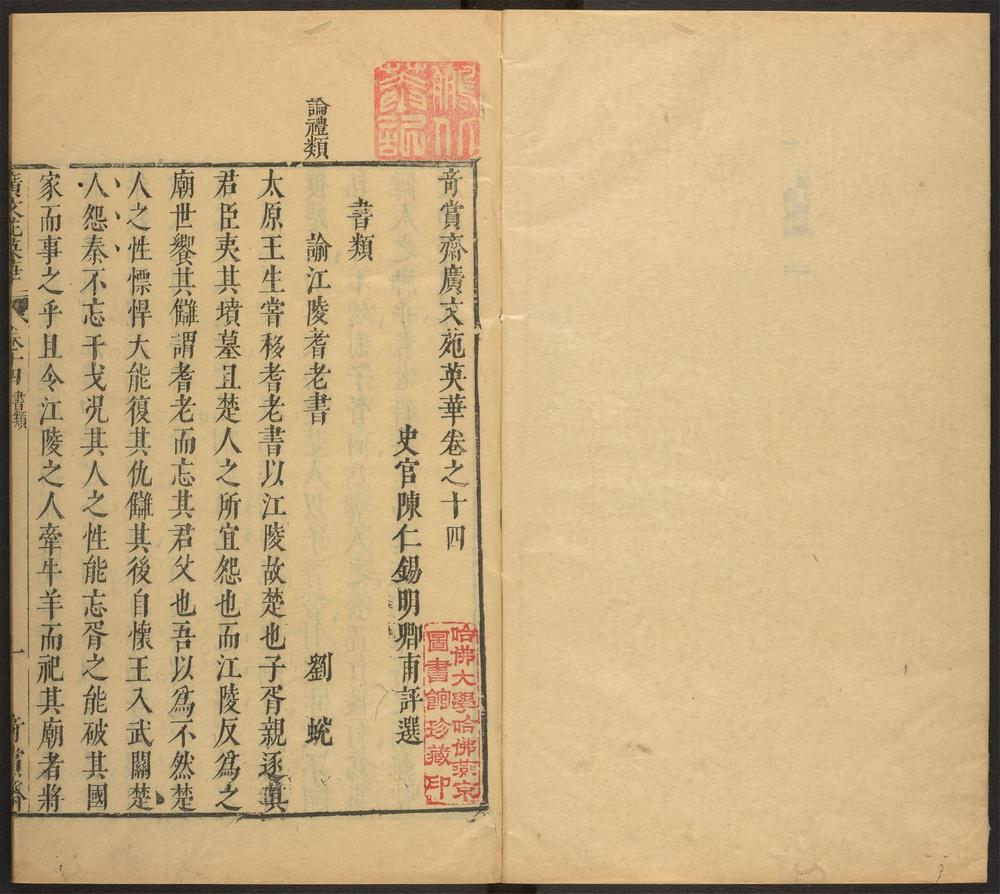 奇賞齋廣文苑英華卷之十四
史官陳仁錫明卿甫評選
書類
諭江陵耆老書 劉蛻
太原王生嘗移耆老書以江陵故楚也子胥親逐其
君臣夷其墳墓且楚人之所宜怨也而江陵反爲之
廟世饗其讎謂耆老而忘其君父也吾以爲不然楚
人之性慓悍大能復其仇讎其後自懷王入武關楚
人怨秦不忘干戈况其人之性能忘胥之能破其國
家而事之乎且令江陵之人牽牛羊而祀其廟者將
廣文苑英華 卷十四 書類 一 奇賞齋
論禮類
哈佛大學哈佛燕京
圖書館珍藏印